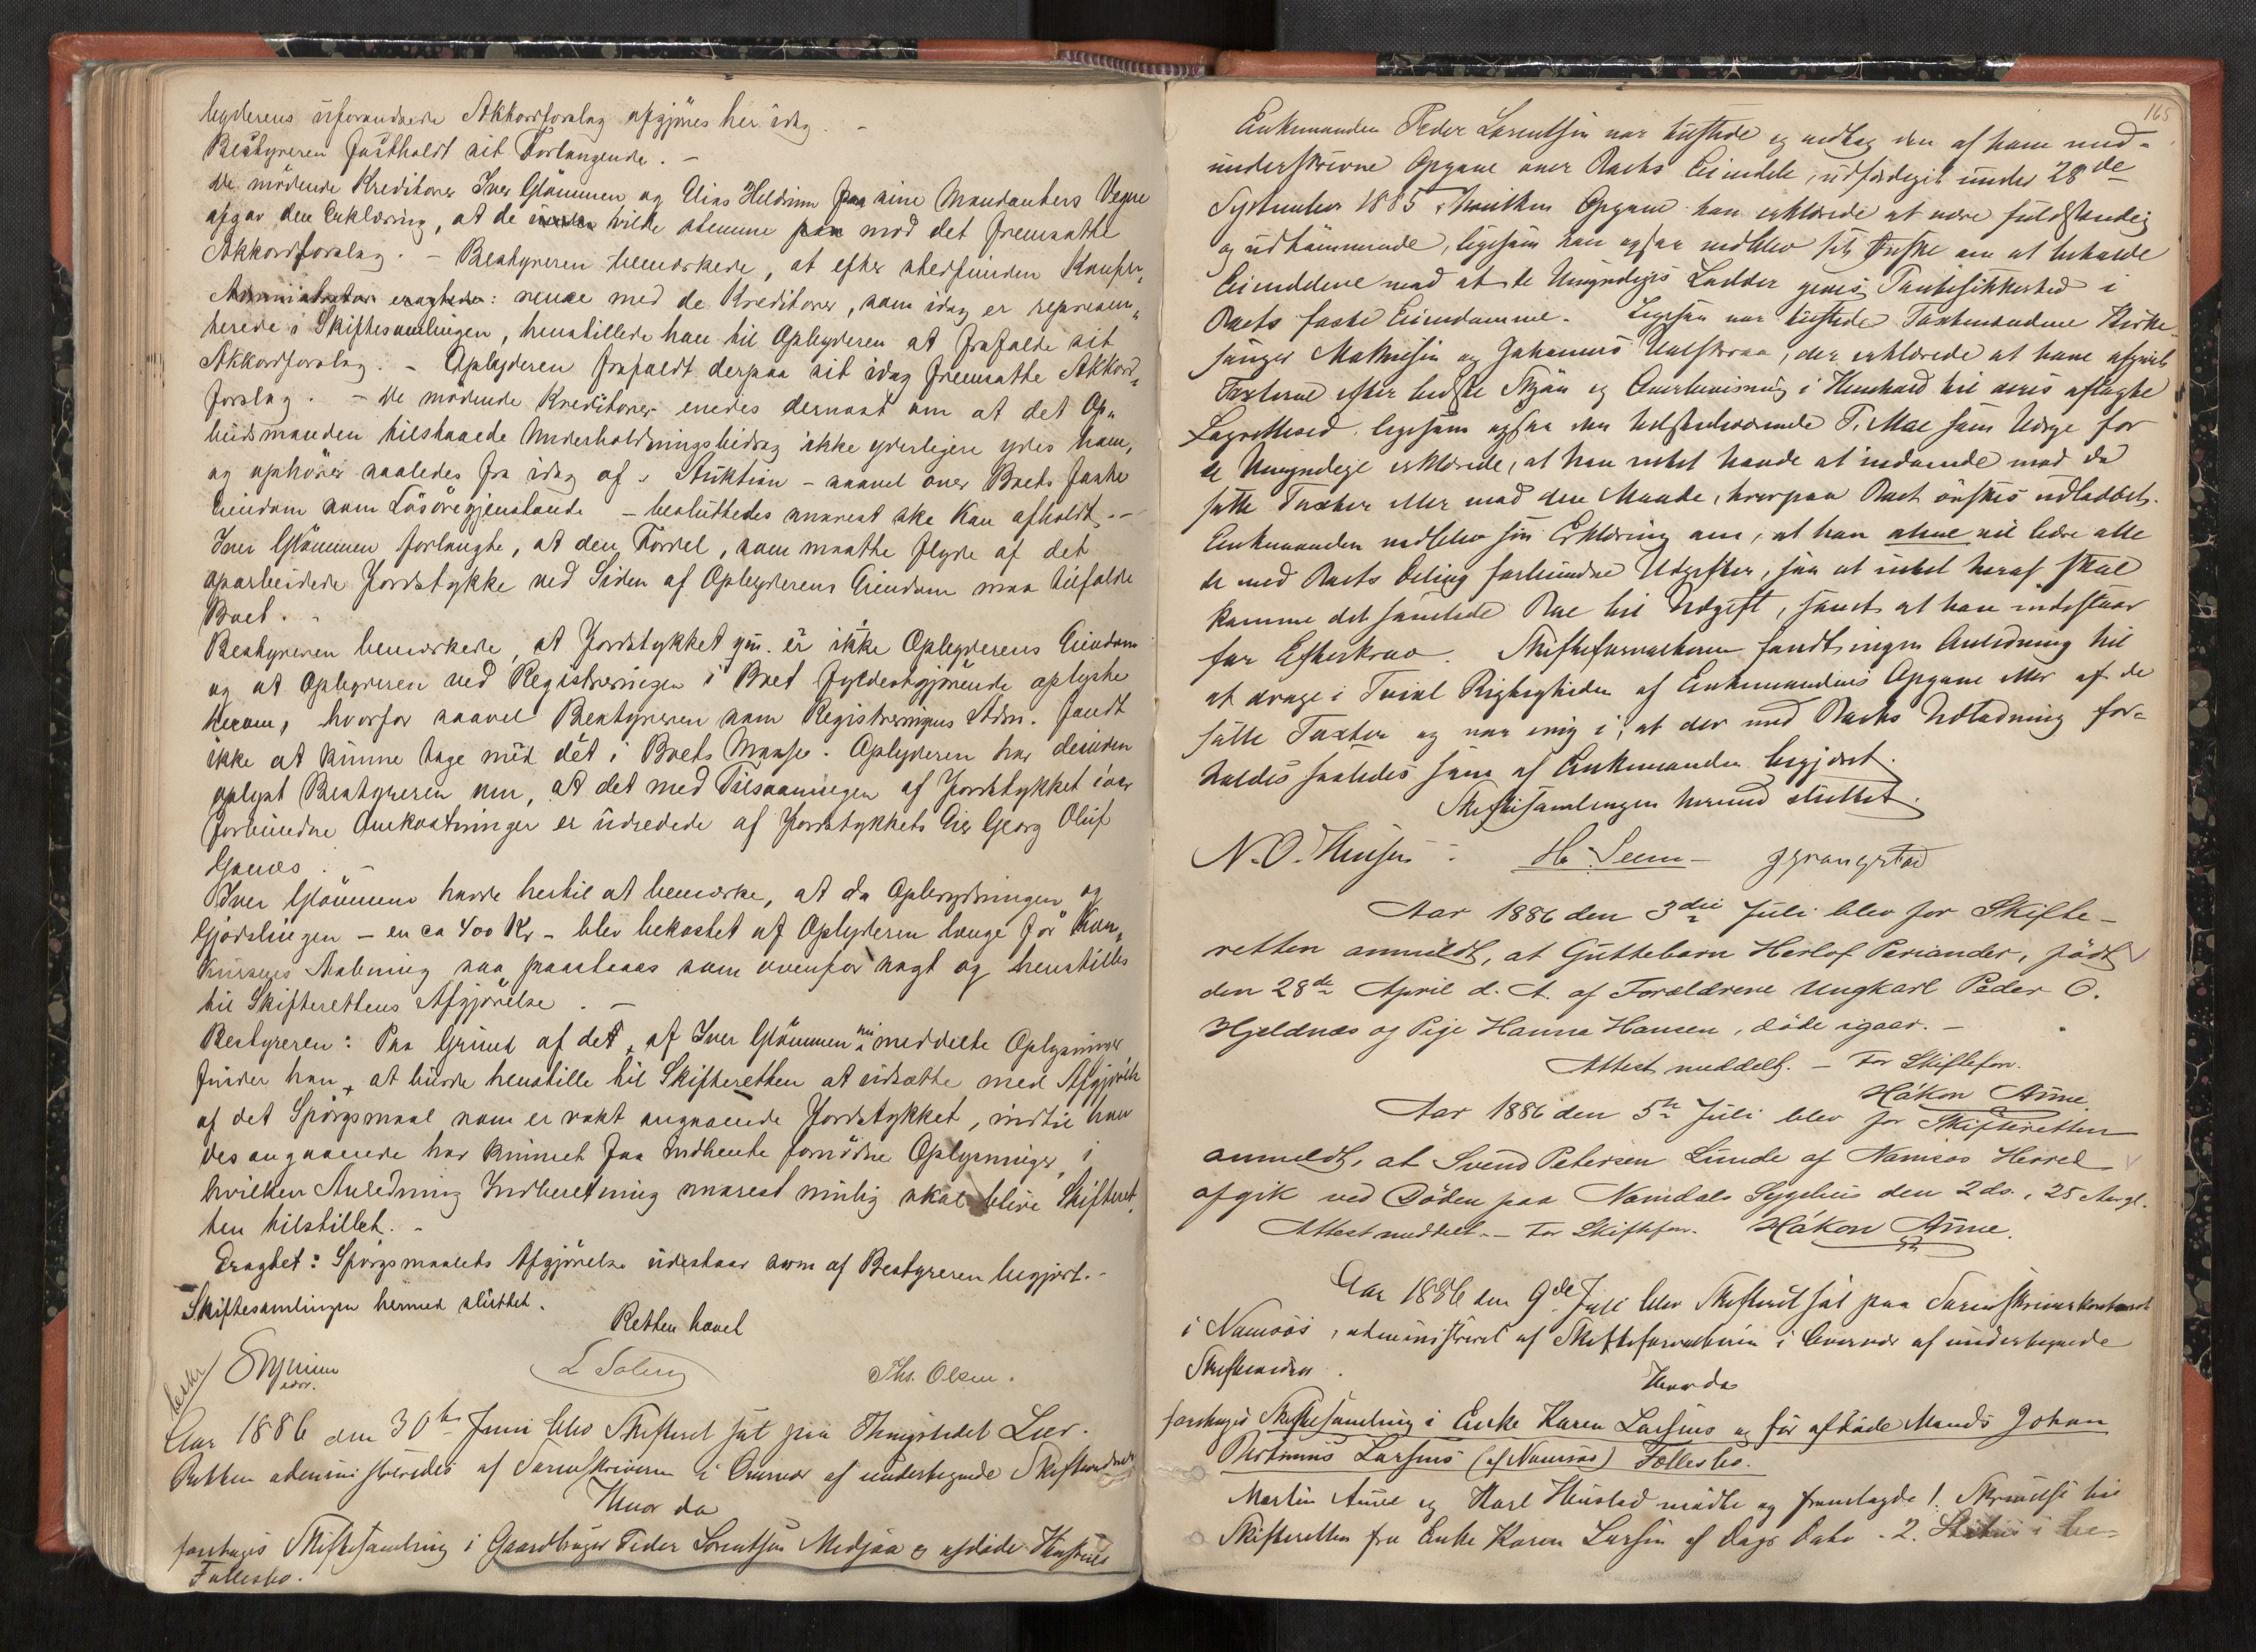 byderens uforandrede Akkordforslag afgjøres her idag. -
Bestyreren fastholdt sit Forlangende. -
De mødende Kreditorer Iver Glømmen og Elias Heldrum paa sine Mandanters Vegne
afgav den Erklæring, at de vilde stemme mod det fremsatte
Akkordforslag. - Bestyreren bemærkede, at efter stedfunden Konfer-
rence med de Kreditorer, som idag er represen-
terede i Skiftesamlingen, henstillede han til Opbyderen at frafalde sit
Akkordforslag. - Opbyderen frafaldt derpaa sit idag fremsatte Akkord-
forslag. - De mødende Kreditorer enedes dernæst om at det Op-
budsmanden tilstaaede Underholdningsbidrag ikke yderligere ydes ham,
og ophører saaledes fra idag af. Auktion - saavel over Boets faste
Eiendom som Løsøregjenstande - besluttedes snarest ske kan afholdt. -
Iver Glømmen forlangte, at den Fordel, som maatte flyde af det
oparbeidede Jordstykke ved Siden af Opbyderens Eiendom maa tilfalde
Boet.
Bestyreren bemærkede, at Jordstykket er ikke Opbyderens Eiendom
og at Opbyderen ved Registreringen i Boet fyldestgjørende oplyste
herom, hvorfor saavel Bestyreren som Registreringens Adm. fandt
ikke at kunne tage med det i Boets Masse. Opbyderen har desuden
oplyst Bestyreren om, at det med Tilsaaningen af Jordstykket iaar
forbundne Omkostninger er udredede af Jordstykkets Eier Georg Oluf
Iver Glømmen havde hertil at bemærke, at da Opbrydningen og
Gjødslingen - en ca 400 Kr - blev bekostet af Opbyderen længe før Kon-
kursens Aabning saa paastaaes som ovenfor sagt og henstilles
til Skifterettens Afgjørelse. -
Bestyreren: Paa Grund af det af Iver Glømmen nu meddelte Oplysninger
finder han at burde henstille til Skifteretten at udsætte med Afgjørelse
af det Spørgsmaal som er vakt angaaende Jordstykket, indtil han
desangaaende har kunnet faa indhente fornødne Oplysninger, i
hvilken Anledning Indberetning snarest mulig skal blive Skifteret-
ten tilstillet. -
Eragtet: Spørgsmaalets Afgjørelse udestaar som af Bestyreren begjært. -
Skiftesamlingen hermed sluttet.
Retten hævet
L Solem
Ths. Olsen.
Aar 1886 den 30te Juni blev Skifteret sat paa Thingstedet Lier.
Retten administreredes af Sorenskriveren i Overvær af undertegnede Skiftevidner
Hvor da
foretoges Skiftesamling i Gaardbruger Peder Lorentsen Medjaa og afdøde Hustrues
Fællesbo.
165
Enkemanden Peder Lorentsen var tilstede og vedtog den af ham med-
underskrevne Opgave over Boets Eiendele, udfærdiget under 28de
September 1885, hvilken Opgave han erklærede at være fuldstændig
og udtømmende, ligesom han ogsaa vedblev sit Ønske om at beholde
Eiendelene mod at de Umyndiges Lodder gives Pantesikkerhed i
Boets faste Eiendomme. Ligesaa var tilstede Taxtmændene Kirke-
sanger Mathisen og Johannes, der erklærede at have afgivet
Taxterne efter bedste Skjøn og Overbevisning i Henhold til deres aflagte
Lagrettesed, ligesom ogsaa den tilstedeværende T. Moe som Værge for
de Umyndige erklærede, at han intet havde at indvende mod de
satte Taxter eller mod den Maade, hvorpaa Boet ønskes udloddet.
Enkemanden vedblev sin Erklæring om, at han alene vil bære alle
de med Boets Deling forbundne Udgifter, saa at intet heraf skal
komme det samlede Boe til Udgift, samt at han indestaar
for Efterkrav. Skifteforvalteren fandt ingen Anledning til
at drage i Tvivl Rigtigheden af Enkemandens Opgave eller af de
satte Taxter og var enig i, at der med Boets Udlodning for-
holdes saaledes som af Enkemanden begjært.
Skiftesamlingen hermed sluttet.
H. Seem -
Aar 1886 den 3die Juli blev for Skifte-
retten anmeldt, at Guttebarn Herlof Periander, født
den 28de April d. A. af Forældrene Ungkarl Peder O.
Hjeldnæs og Pige Hanna Hansen, døde igaar. -
Attest meddelt. - For Skiftefor.
Håkon Aune.
Aar 1886 den 5te Juli blev for Skifteretten
anmeldt, at Svend Petersen Lunde af Namsos Herred
afgik ved Døden paa Namdals Sygehus den 2 ds., 25 Aar gl.
Attest meddelt. - For Skiftefor. Håkon Aune.
Aar 1886 den 9de Juli blev Skifteret sat paa Sorenskriverkontoret
i Namsos, administreret af Skifteforvalteren i Overvær af undertegnede
Skiftevidner.
Hvor da
foretoges Skiftesamling i Enke Karen Larsens og før afdøde Mands Johan
Larsens (af Namsos) Fællesbo.
Martin Aune og Karl Hustad mødte og fremlagde 1. Skrivelse til
Skifteretten fra Enke Karen Larsen af Dags Dato. 2.